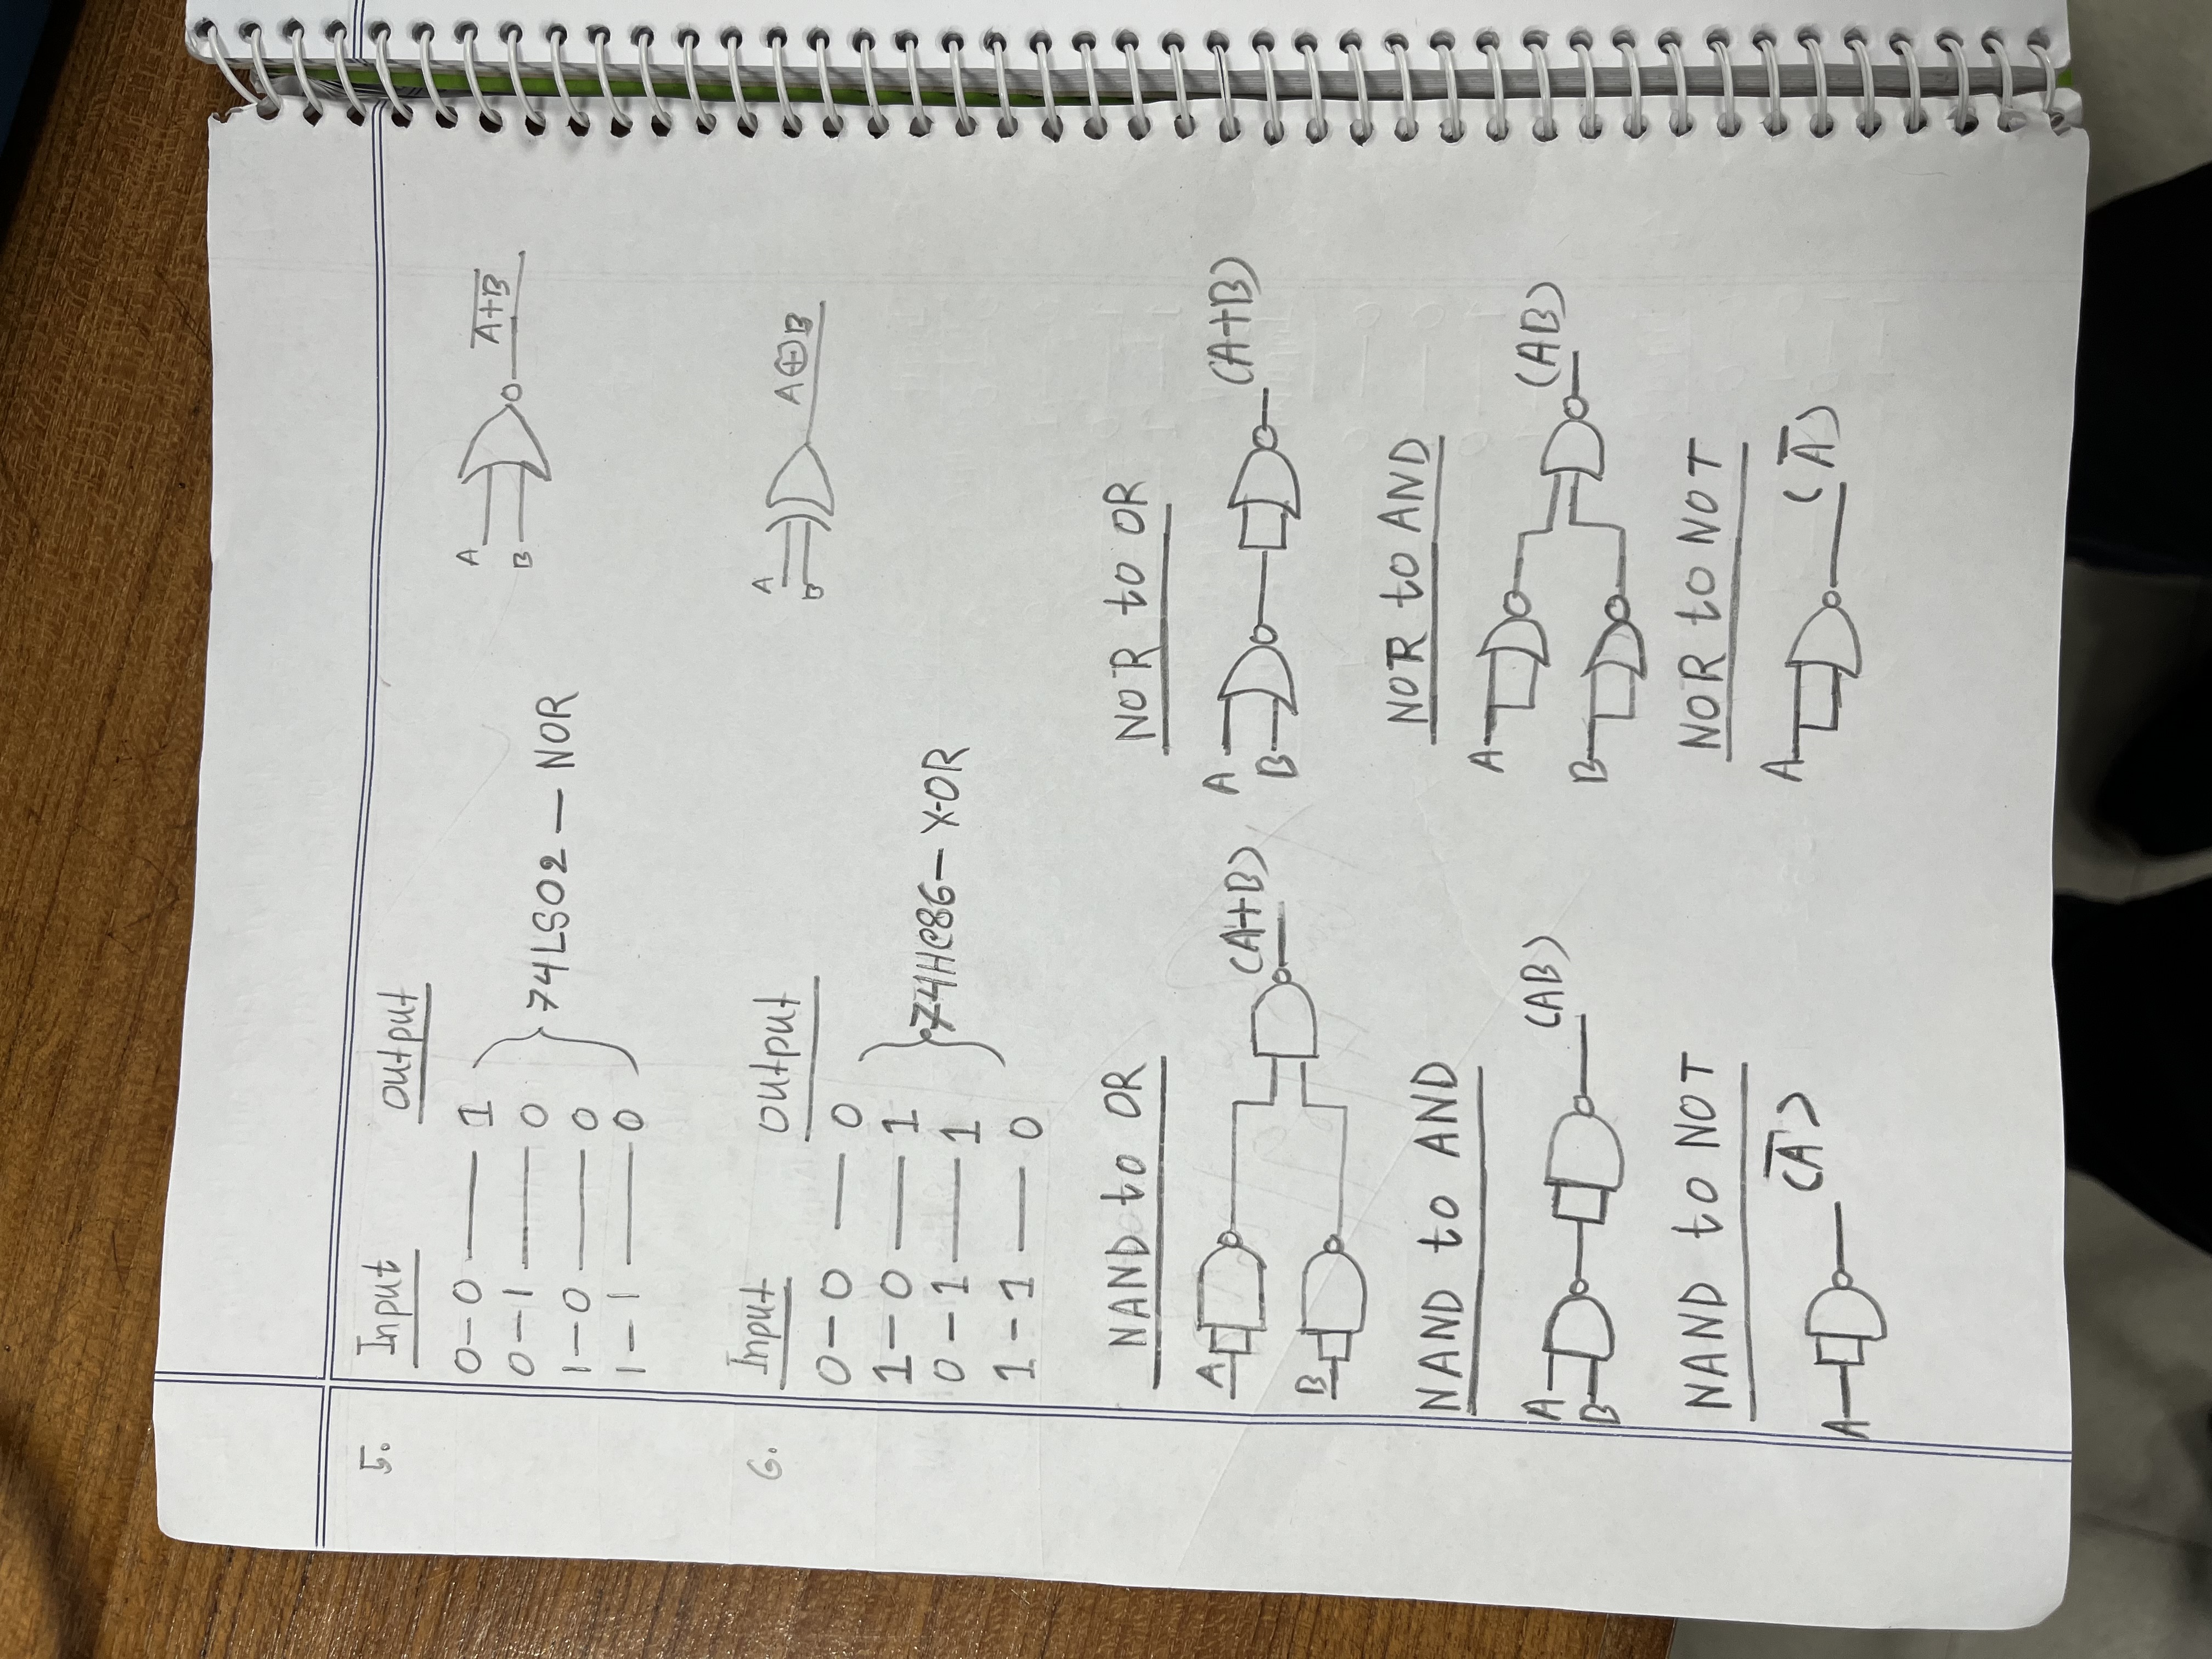 5. Input output
0-0 — 1
0-1 — 0
1-0 — 0
1-1 — 0
74LS02 — NOR
A
B
A+B̅
6. Input output
0-0 — 0
1-0 — 1
0-1 — 1
1-1 — 0
74HC86 — X-OR
A
B
A⊕B
NAND to OR
A
B
(A+B)
NOR to OR
A
B
(A+B)
NAND to AND
A
B
(AB)
NOR to AND
A
B
(AB)
NAND to NOT
A
(A̅)
NOR to NOT
A
(A̅)